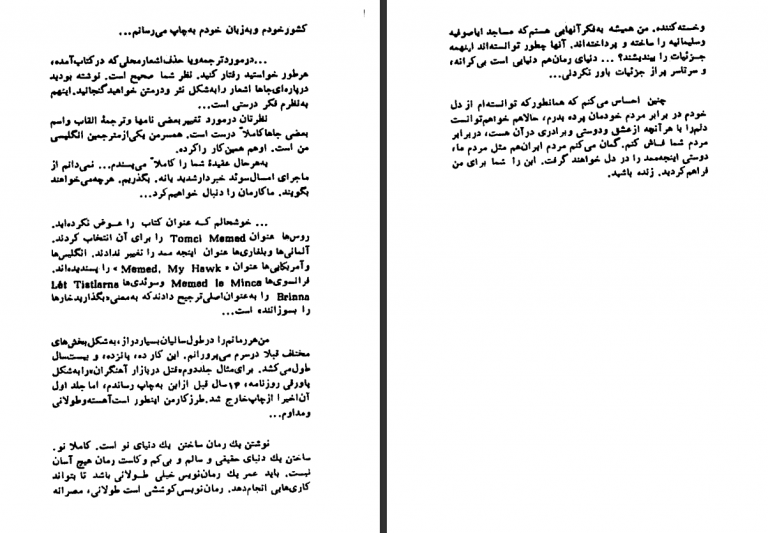 کشور خودم و به زبان خودم به چاپ می‌رسانم...
...در مورد ترجمه و یا حذف اشعار محلی که در کتاب آمده،
هرطور خواستید رفتار کنید. نظر شما صحیح است. نوشته بودید
درباره‌ای جاها اشعار را به شکل نثر و در متن خواهید گنجانید. اینهم
به نظرم فکر درستی است...
نظرتان در مورد تغییر بعضی نامها و ترجمهٔ القاب و اسم
بعضی جاها کاملاً درست است. همسر من یکی از مترجمین انگلیسی
من است. او هم همین کار را کرده.
به هر حال عقیدهٔ شما را کاملاً می‌پسندم... نمی‌دانم از
ماجرای امسال سوئد خبردار شدید یا نه. بگذریم. هر چه می‌خواهند
بگویند. ما کارمان را دنبال خواهیم کرد...
... خوشحالم که عنوان کتاب را عوض نکرده‌اید.
روس‌ها عنوان Tomci Memed را برای آن انتخاب کردند.
آلمانی‌ها و بلغاری‌ها عنوان اینجه ممد را تغییر ندادند. انگلیس‌ها
و آمریکایی‌ها عنوان «Memed, My Hawk» را پسندیده‌اند.
فرانسوی‌ها Memed le Mince و سوئدی‌ها Låt Tistlarna
Brinna را به عنوان اصلی ترجیح دادند که به معنی «بگذارید خارها
را بسوزانند» است...
من هر رمانم را در طول سالیان بسیار دراز، به شکل بخش‌های
مختلف قبلا در سرم می‌پرورانم. این کار ده، پانزده، و بیست سال
طول می‌کشد. برای مثال جلد دوم «قتل در بازار آهنگران» را به شکل
پاورقی روزنامه، ۱۴ سال قبل از این به چاپ رساندم، اما جلد اول
آن اخیرا از چاپ خارج شد. طرز کار من اینطور است آهسته و طولانی
و مداوم...
نوشتن یك رمان ساختن یك دنیای نو است. کاملا نو.
ساختن یك دنیای حقیقی و سالم و بی‌کم و کاست رمان هیچ آسان
نیست. باید عمر یك رمان‌نویس خیلی طولانی باشد تا بتواند
کاری‌هایی انجام دهد. رمان‌نویسی کوششی است طولانی، مصرانه
و خسته‌کننده. من همیشه به فکر آنهایی هستم که مساجد ایاصوفیه
و سلیمانیه را ساخته و پرداخته‌اند. آنها چطور توانسته‌اند اینهمه
جزئیات را بیندیشند؟ ... دنیای رمان هم دنیایی است بی‌کرانه،
و سرتاسر پر از جزئیات باور نکردنی...
چنین احساس می‌کنم که همانطور که توانسته‌ام از دل
خودم در برابر مردم خودمان پرده بدرم، حالا هم خواهم توانست
دلم را با هر آنچه از عشق و دوستی و برادری در آن هست، در برابر
مردم شما فاش کنم. گمان می‌کنم مردم ایران هم مثل مردم ما،
دوستی اینجه ممد را در دل خواهند گرفت. این را شما برای من
فراهم کردید. زنده باشید.